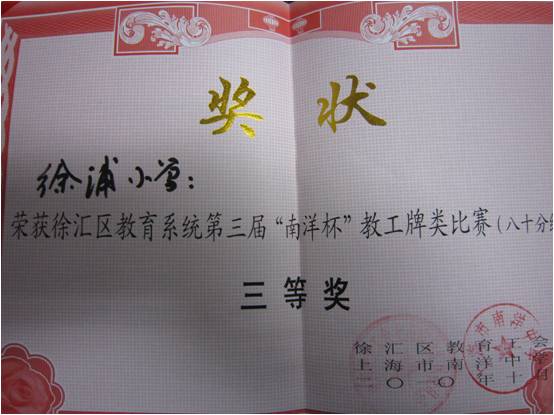 奖状
徐浦小学：
荣获徐汇区教育系统第三届“南洋杯”教工牌类比赛（八十分
三等奖
徐汇区教育工会
上海市南洋中学
二〇一〇年十